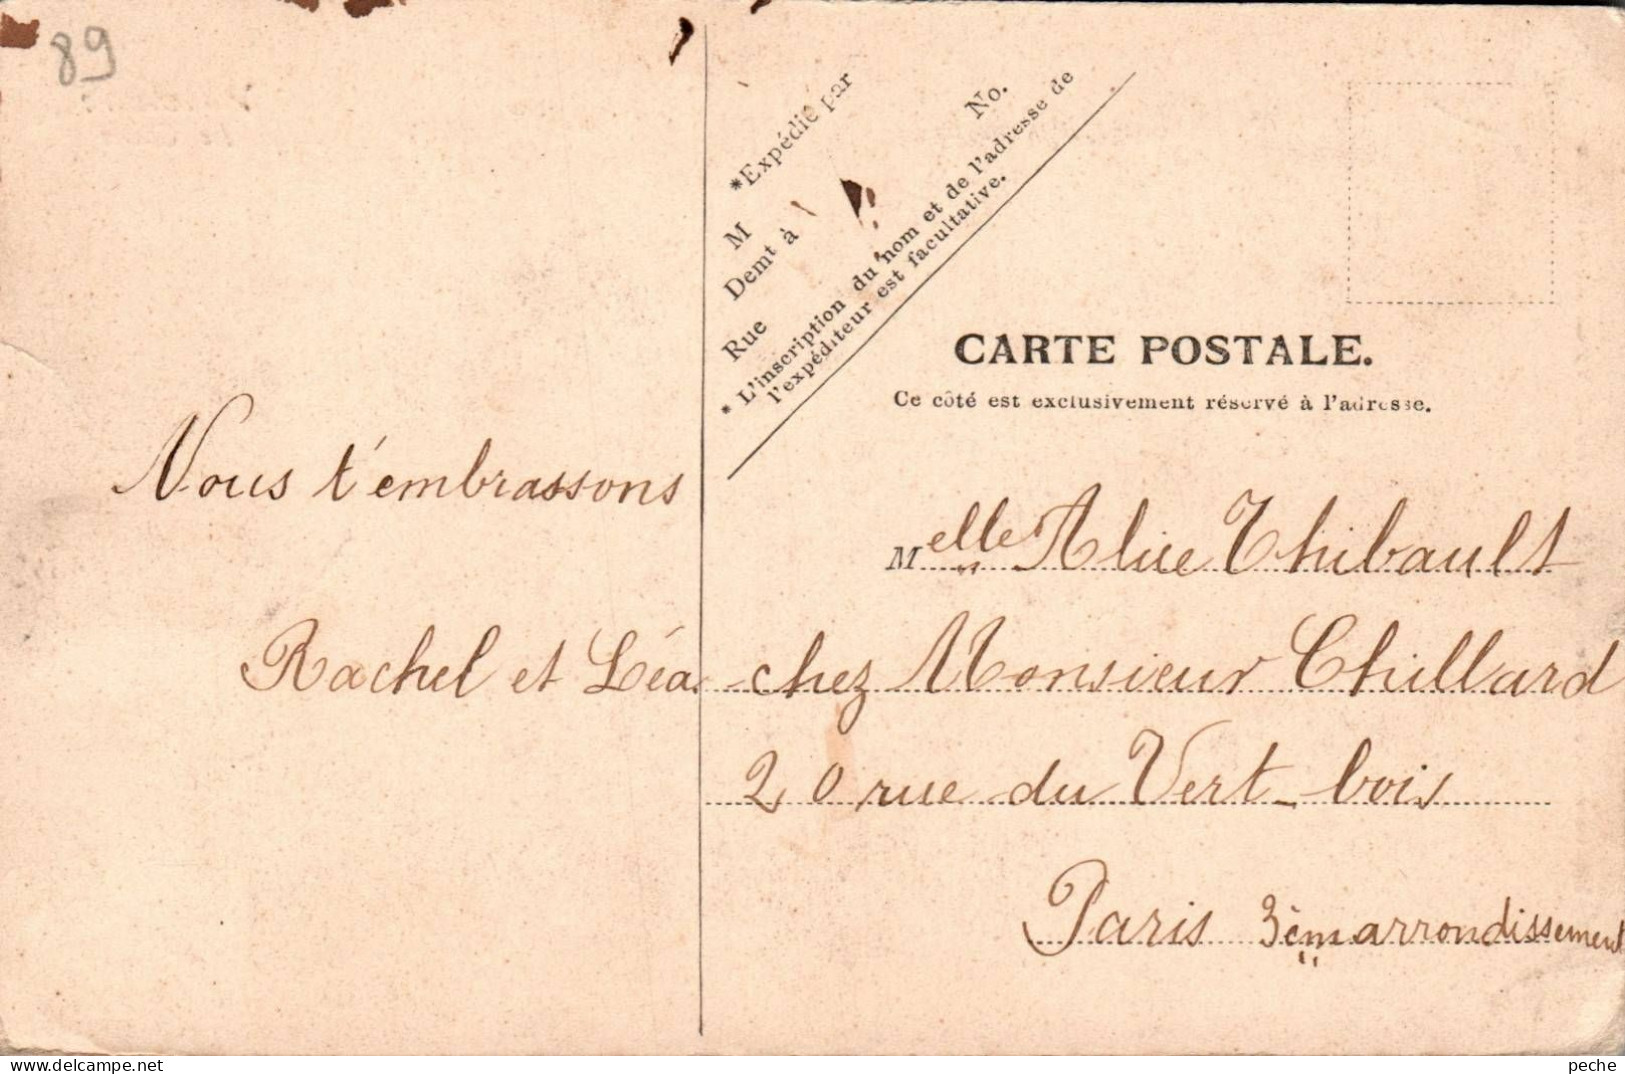 89
*Expédié par
M No.
Demt à
Rue
* L'inscription du nom et de l'adresse de
l'expéditeur est facultative.
CARTE POSTALE.
Ce côté est exclusivement réservé à l'adresse.
Nous t'embrassons
Rachel et Léa.
Melle Alice Thibault
chez Monsieur Chillard
20 rue du Vert-bois
Paris 3èm arrondissement
peche